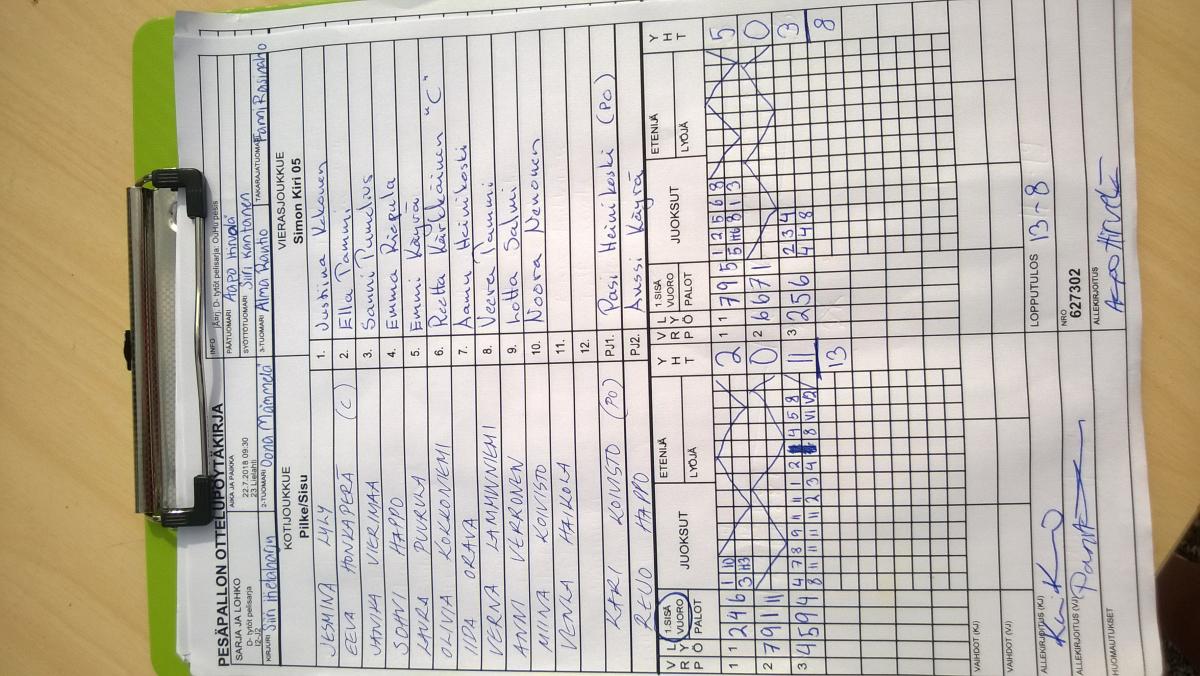 PESÄPALLON OTTELUPÖYTÄKIRJA
SARJA JA LOHKO
D- tytöt pelisarja
AIKA JA PAIKKA
22.7.2018 09:30
23 Lielahti
INFO
Järj. D- tytöt pelisarja: OuHu pesis
PÄÄTUOMARI Aapo Hirvelä
SYÖTTÖTUOMARI Siiri Kantanen
KIRJURI Siiri Hietaharju
2-TUOMARI Oona Mämmelä
3-TUOMARI Alma Rautio
TAKARAJATUOMARI Pami Rasinaho
KOTIJOUKKUE
Pilke/Sisu
VIERASJOUKKUE
Simon Kiri 05
JEMINA LYLY 1. Justiina Kokonen
EEVA HONKAPERÄ (C) 2. Ella Tammi
JANIKA VIERMAA 3. Sanni Pumelius
SOHVI HAPPO 4. Emma Riepula
LAURA PUURULA 5. Emmi Käyrä
OLIVIA KOKKONIEMI 6. Reetta Kärkkäinen "C"
IIDA ORAVA 7. Aamu Heinikoski
VERNA LAMMINNIEMI 8. Veera Tammi
ANNI VERRONEN 9. Lotta Salmi
MIINA KOIVISTO 10. Noora Nenonen
VENLA HAIKOLA 11.
12.
KARI KOIVISTO (PO) PJ1. Pasi Heinikoski (PO)
REIJO HAPPO PJ2. Anssi Käyrä
V R P L Y Ö 1.SISÄ VUORO PALOT JUOKSUT ETENIJÄ LYÖJÄ Y H T V R P L Y Ö 1.SISÄ VUORO PALOT JUOKSUT ETENIJÄ LYÖJÄ Y H T
1 1 2 4 6 1 10 2 1 1 7 9 5 1 2 5 6 8 5
2 7 9 11 0 2 6 6 7 1 0
3 4 5 9 4 4 7 8 9 11 1 2 4 5 8 11 3 1 2 5 6 2 3 4 3
8 11 11 11 11 2 3 4 8 V1 V2 4 4 8
13 8
VAIHDOT (KJ)
VAIHDOT (VJ)
ALLEKIRJOITUS (KJ)
LOPPUTULOS 13-8
ALLEKIRJOITUS (VJ)
NRO
627302
HUOMAUTUKSET
ALLEKIRJOITUS
Aapo Hirvelä